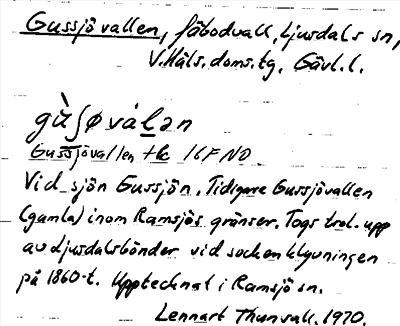 Gussjövallen, fäbodvall, Ljusdals sn,
V.Häls.doms.tg, Gävl.l.
gùʃøválən
Gussjövallen tk 16F NO
Vid sjön Gussjön. Tidigare Gussjövallen
(gamla) inom Ramsjös gränser. Togs trol. upp
av Ljusdalsbönder vid sockenklyvningen
på 1860-t. Upptecknat i Ramsjö sn.
Lennart Thunvall. 1970.